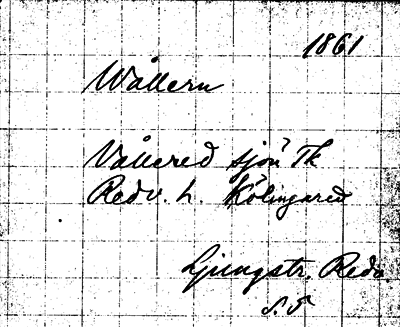 1861
Wållern
Vållered sjön Tk
Redv. h. Kölingared
Ljungstr. Redv.
s. 5